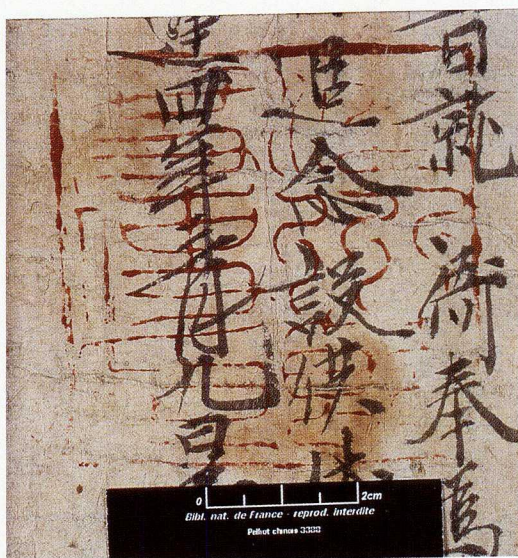 日就 衙奉爲
追念設供
運四年三月九日
0 2cm
Bibl. nat. de France - reprod. interdite
Pelliot chinois 3388